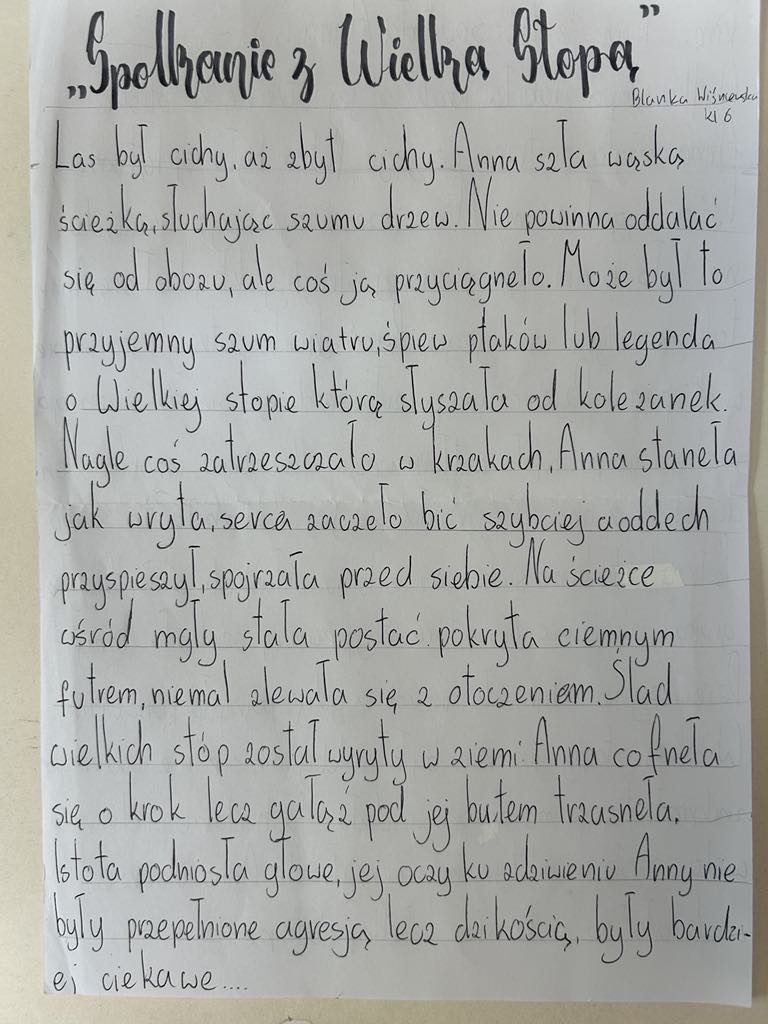 „Spotkanie z Wielką Stopą”
Blanka Wiśniewska
kl 6
Las był cichy, aż zbyt cichy. Anna szła wąską
ścieżką, słuchając szumu drzew. Nie powinna oddalać
się od obozu, ale coś ją przyciągneło. Może był to
przyjemny szum wiatru, śpiew ptaków lub legenda
o Wielkiej stopie którą słyszała od kolezanek.
Nagle coś zatrzeszczało w krzakach, Anna staneła
jak wryta, serce zaczeło bić szybciej a oddech
przyspieszył, spojrzała przed siebie. Na ścieżce
wśród mgły stała postać pokryta ciemnym
futrem, niemal zlewała się z otoczeniem. Ślad
wielkich stóp został wyryty w ziemi. Anna cofneła
się o krok lecz gałąź pod jej butem trzasneła.
Istota podniosła głowe, jej oczy ku zdziwieniu Anny nie
były przepełnione agresją lecz dzikością, były bardzi-
ej ciekawe....